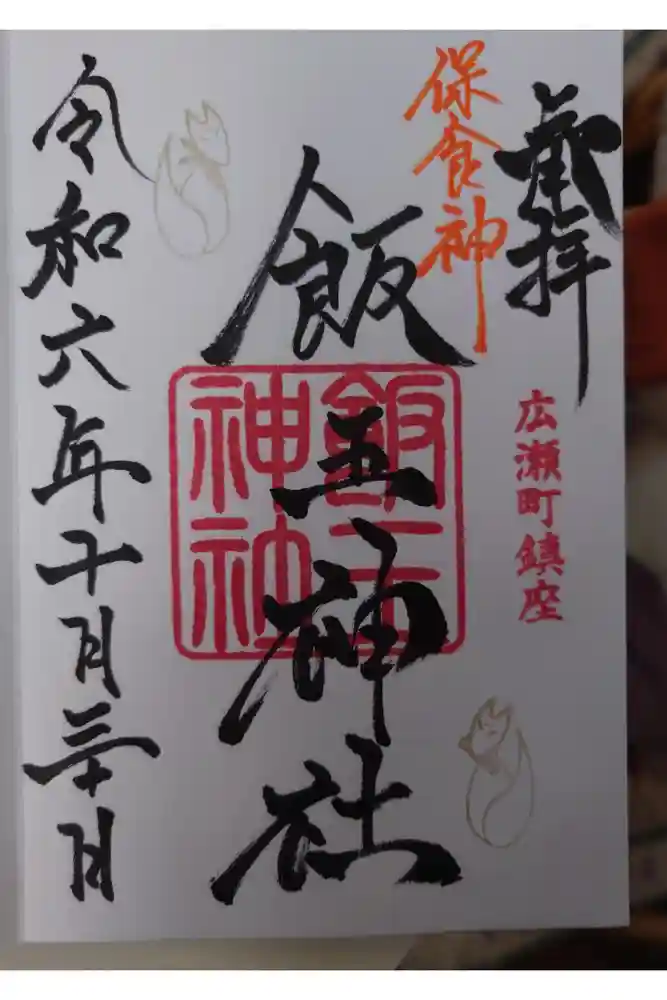 奉拝
広瀬町鎮座
保食神
飯玉神社
飯玉
神社
令和六年十月三十日